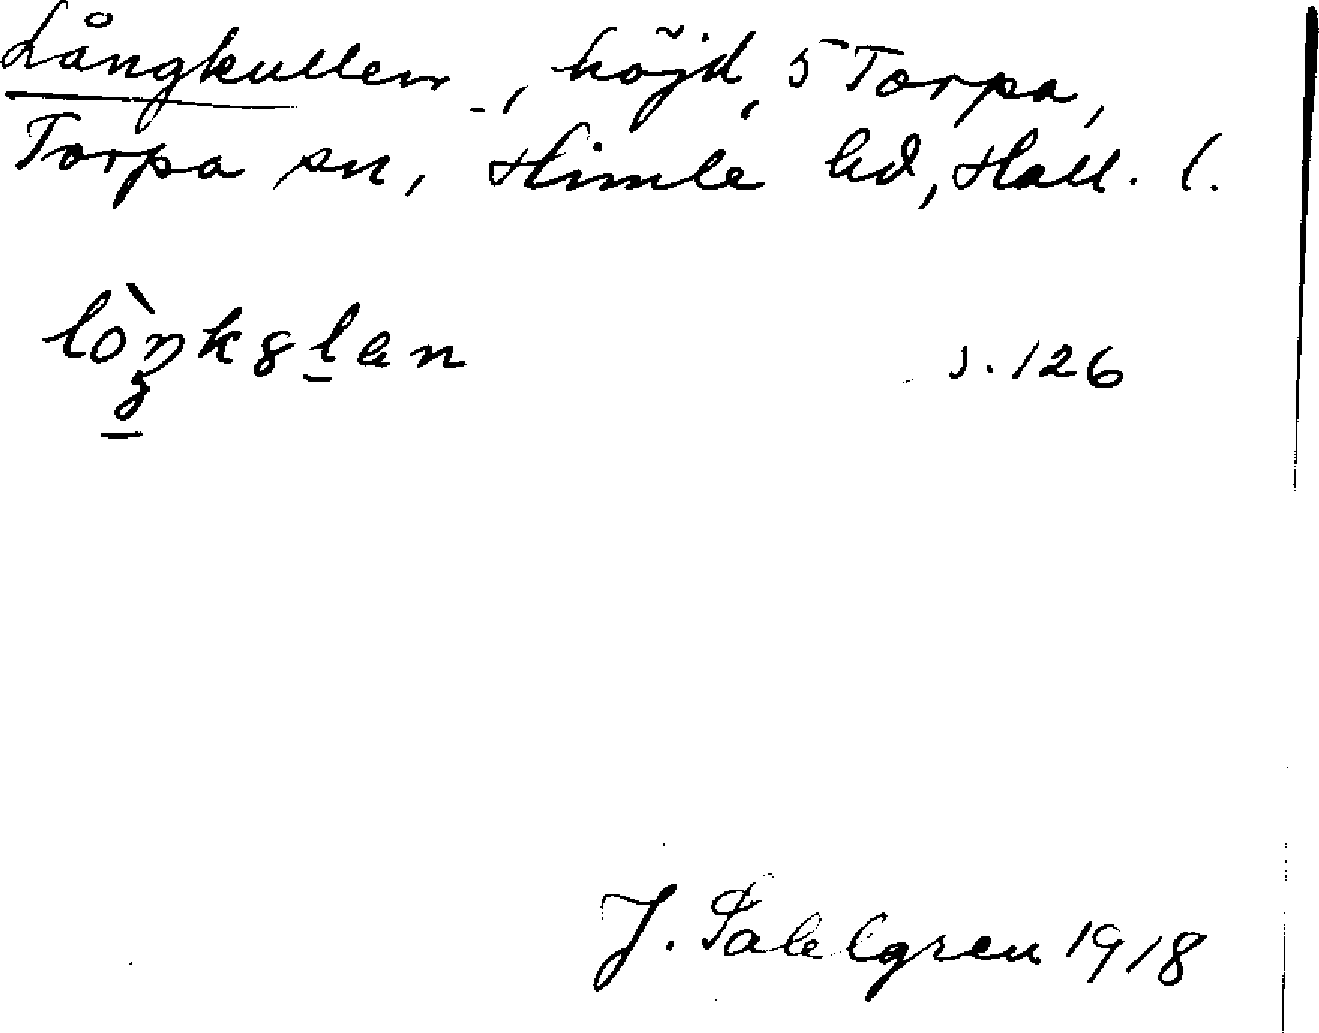 Långkullen, höjd, 5 Torpa,
Torpa sn, Himle hd, Hall. l.
s. 126
J. Sahlgren 1918